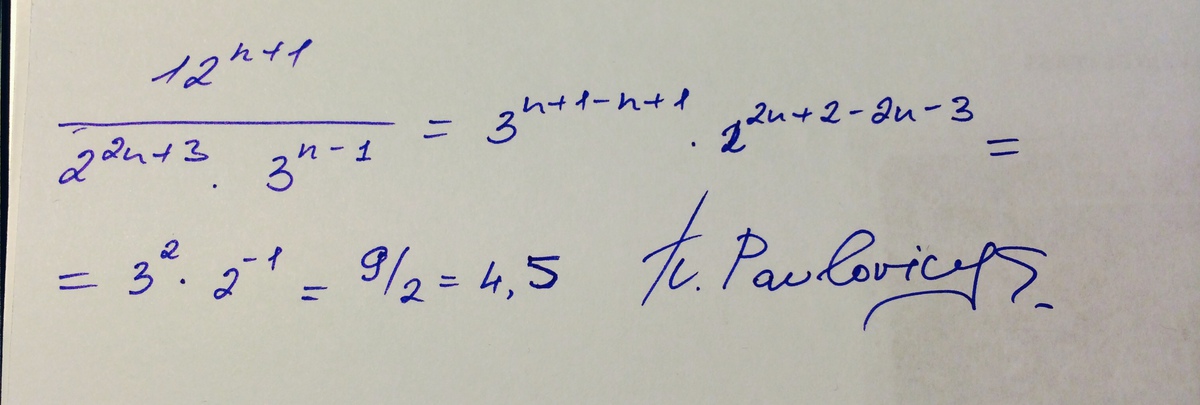 12^{n+1} / (2^{2n+3} · 3^{n-1}) = 3^{n+1-n+1} · 2^{2n+2-2n-3} =
= 3^2 · 2^{-1} = 9/2 = 4,5